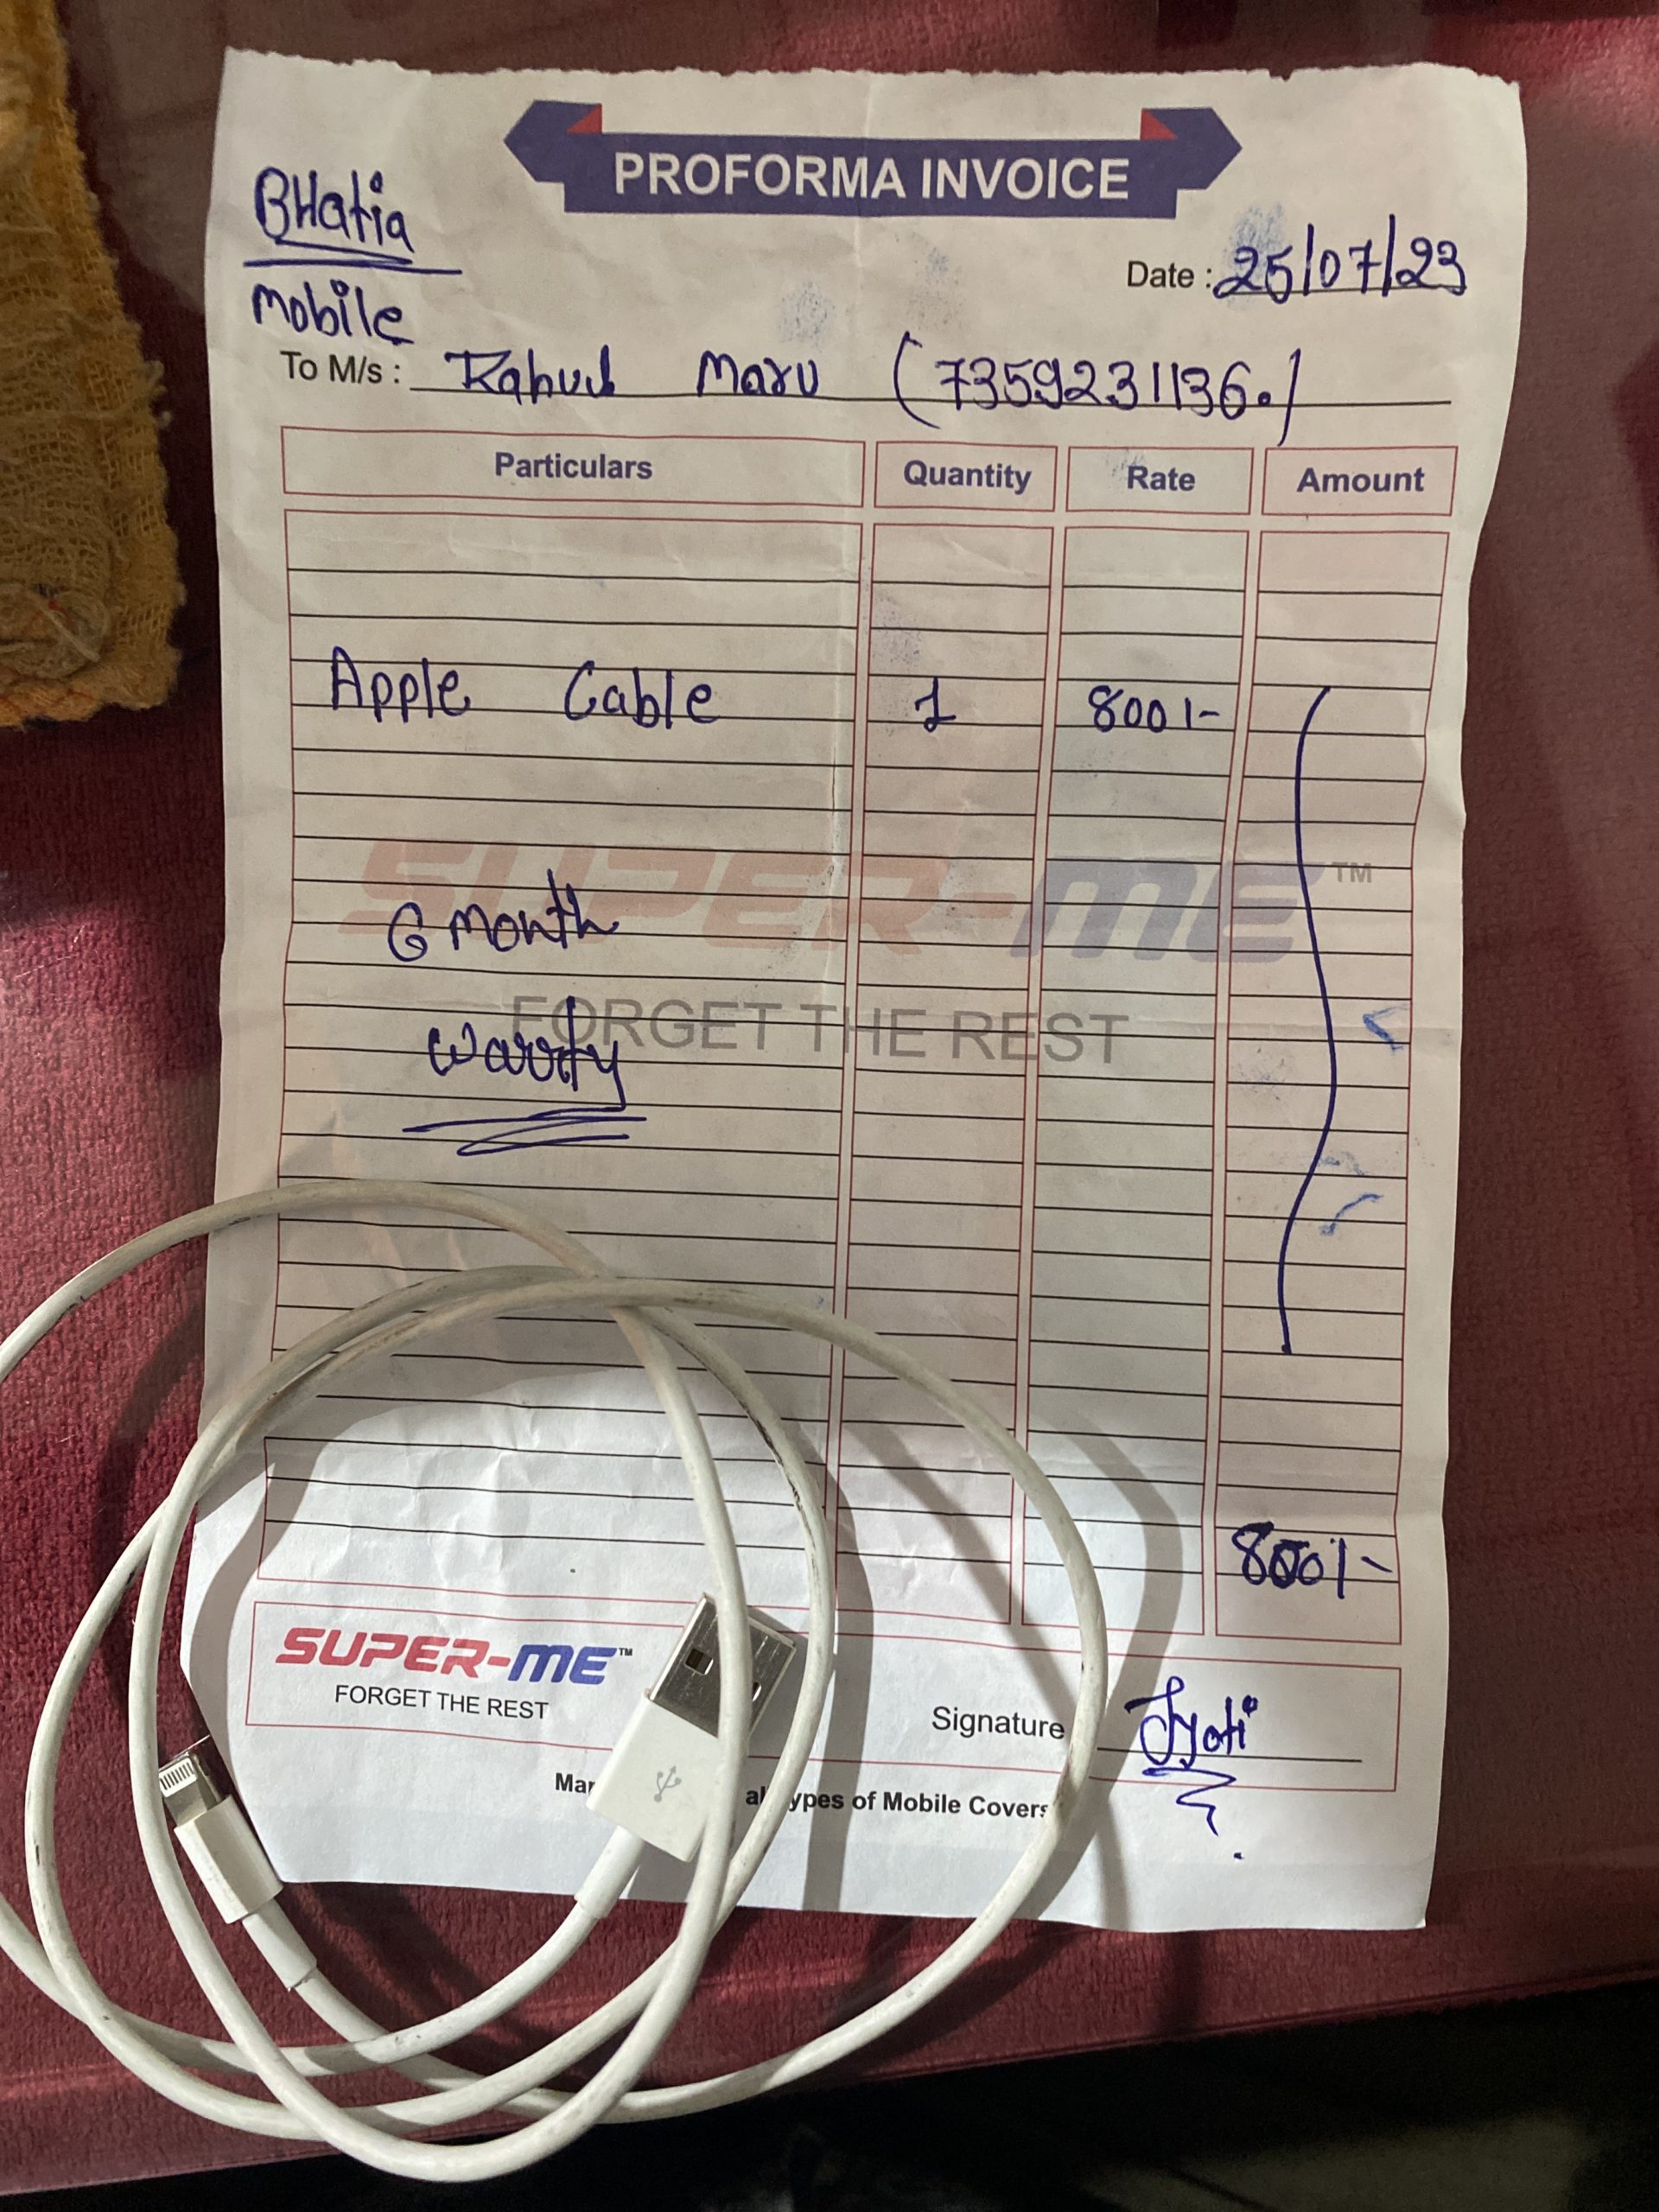 PROFORMA INVOICE
BHatia
Mobile
Date : 25/07/23
To M/s : Rahul Maru (7359231136.)
Particulars Quantity Rate Amount
Apple Cable 1 800/-
SUPER-ME TM
6 Month
FORGET THE REST
warrty
800/-
SUPER-ME TM
FORGET THE REST
Signature Jyoti
of Mobile Covers